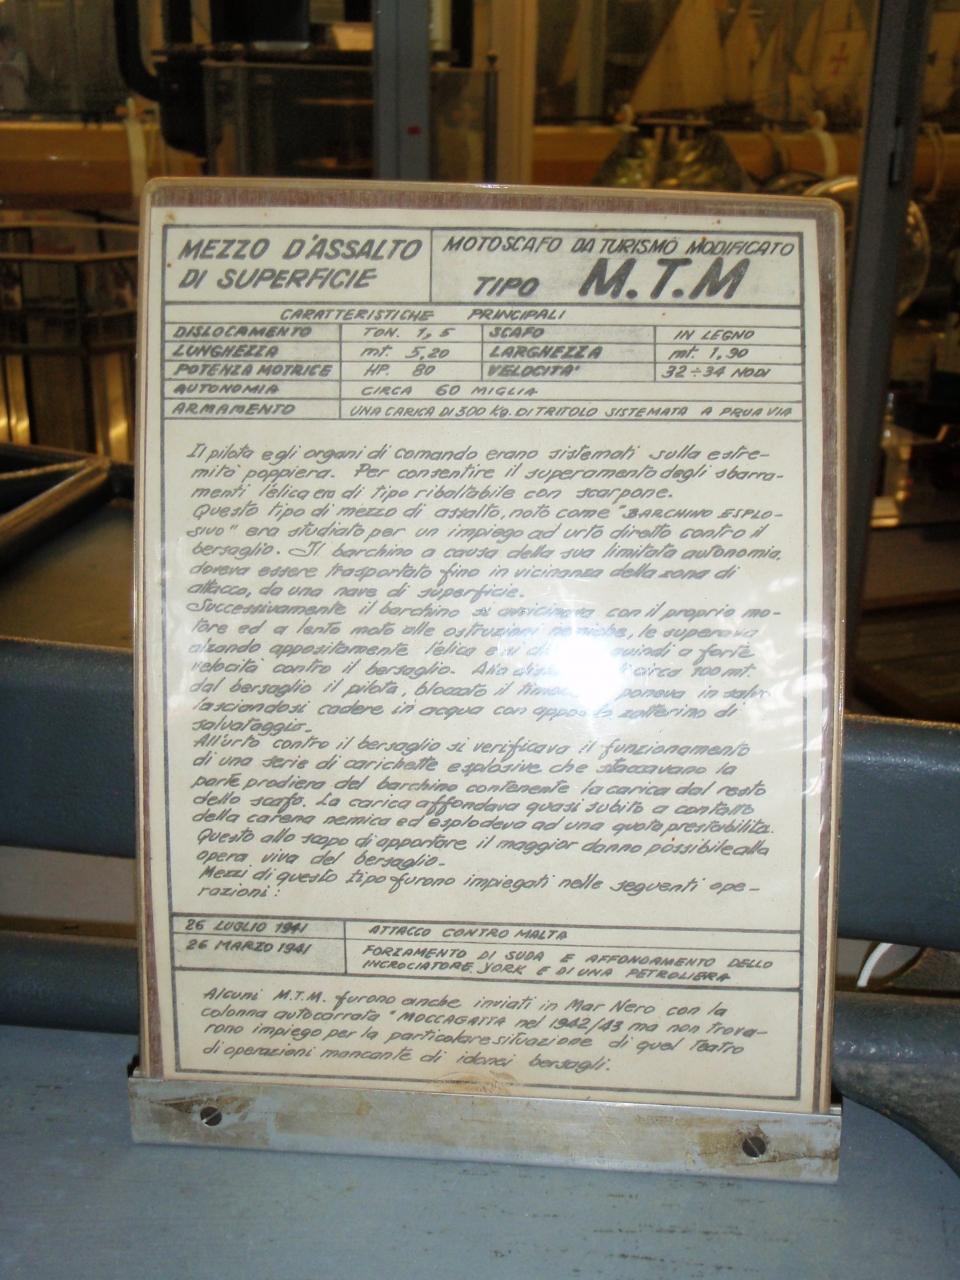 MEZZO D'ASSALTO
DI SUPERFICIE
MOTOSCAFO DA TURISMO MODIFICATO
TIPO M.T.M
CARATTERISTICHE PRINCIPALI
DISLOCAMENTO TON. 1,5 SCAFO IN LEGNO
LUNGHEZZA mt. 5,20 LARGHEZZA mt. 1,90
POTENZA MOTRICE HP. 80 VELOCITA' 32÷34 NODI
AUTONOMIA CIRCA 60 MIGLIA
ARMAMENTO UNA CARICA DI 300 Kg. DI TRITOLO SISTEMATA A PRUAVIA
Il pilota e gli organi di comando erano sistemati sulla estre-
mità poppiera. Per consentire il superamento degli sbarra-
menti l'elica era di tipo ribaltabile con scarpone.
Questo tipo di mezzo di assalto, noto come "BARCHINO ESPLO-
SIVO" era studiato per un impiego ad urto diretto contro il
bersaglio. Il barchino a causa della sua limitata autonomia,
doveva essere trasportato fino in vicinanza della zona di
attacco, da una nave di superficie.
Successivamente il barchino si avvicinava con il proprio mo-
tore ed a lento moto alle ostruzioni nemiche, le superava
alzando appositamente l'elica e si quindi a forte
velocità contro il bersaglio. Alla circa 100 mt.
dal bersaglio il pilota, bloccato il poneva in salvo
lasciandosi cadere in acqua con apposito zatterino di
salvataggio.
All'urto contro il bersaglio si verificava il funzionamento
di una serie di carichette esplosive che staccavano la
parte prodiera del barchino contenente la carica dal resto
dello scafo. La carica affondava quasi subito a contatto
della carena nemica ed esplodeva ad una quota prestabilita.
Questo allo scopo di apportare il maggior danno possibile alla
opera viva del bersaglio.
Mezzi di questo tipo furono impiegati nelle seguenti ope-
razioni:
26 LUGLIO 1941 ATTACCO CONTRO MALTA
26 MARZO 1941 FORZAMENTO DI SUDA E AFFONDAMENTO DELLO
INCROCIATORE YORK E DI UNA PETROLIERA
Alcuni M.T.M. furono anche inviati in Mar Nero con la
colonna autocarrata "MOCCAGATTA nel 1942/43 ma non trova-
rono impiego per la particolare situazione di quel Teatro
di operazioni mancante di idonei bersagli.